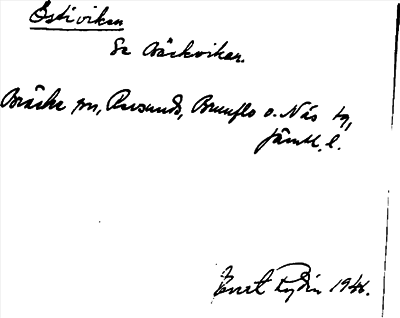 Östviken
Se Bäckviken.
Bräcke sn, Revsunds, Brunflo o. Näs tg,
Jämtl. l.
Evert Rydin 1946.